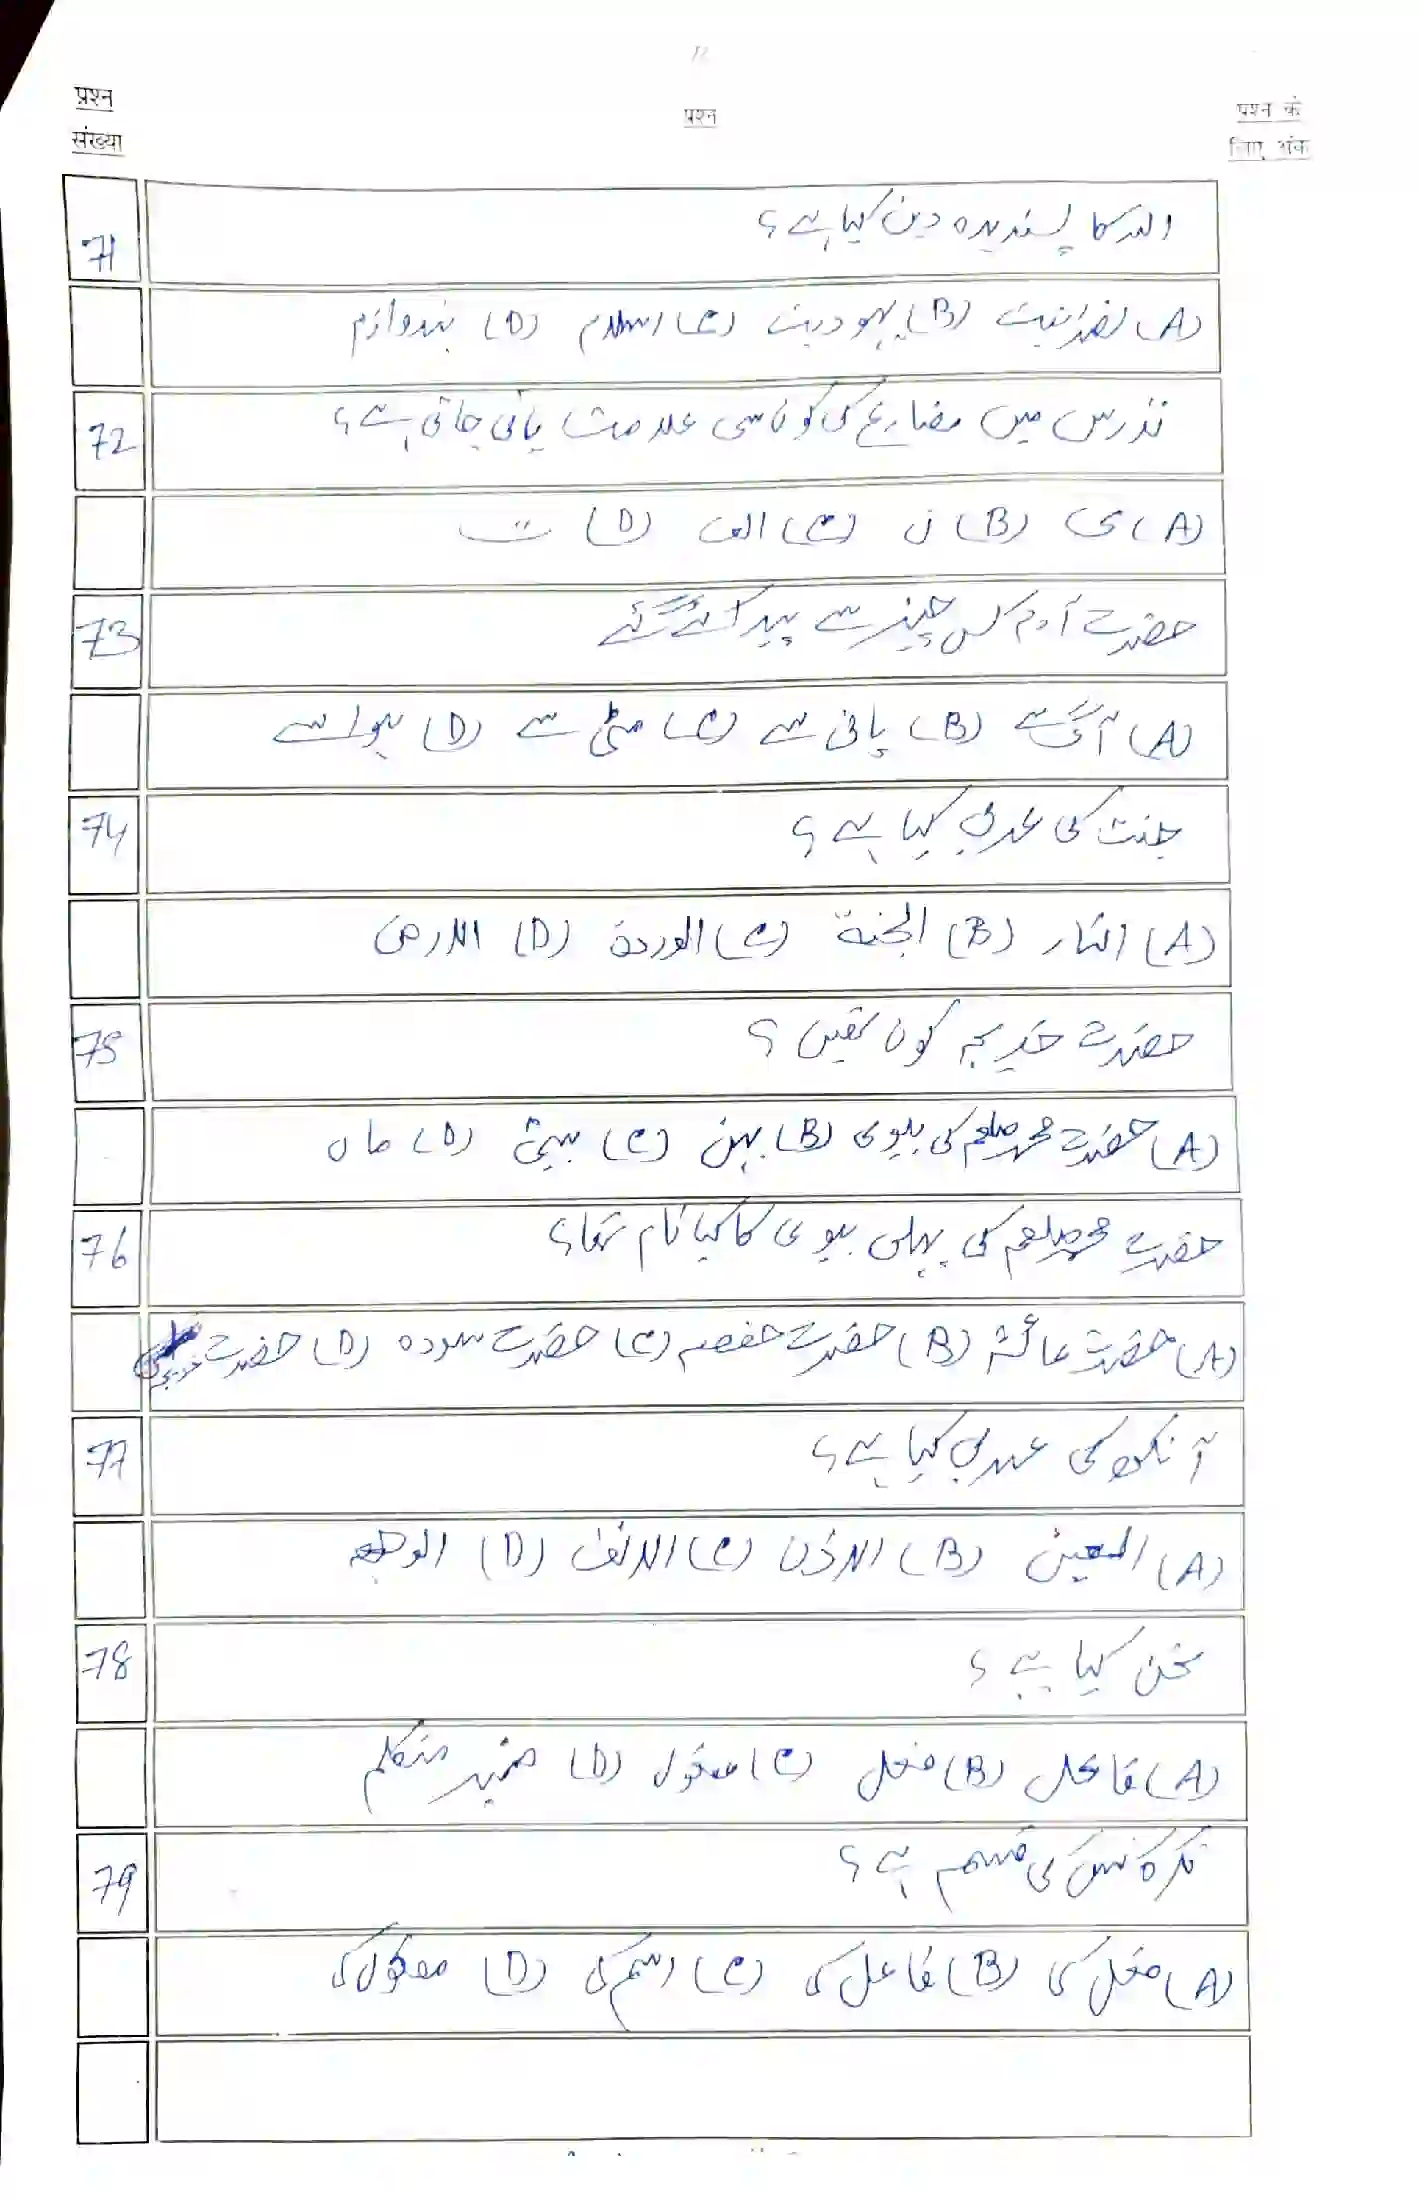 12
प्रश्न संख्या
प्रश्न
प्रश्न के लिए अंक
71 اللہ کا پسندیدہ دین کیا ہے؟
(A) نصرانیت (B) یہودیت (C) اسلام (D) ہندوازم
72 ندرس میں مضارع کی کون سی علامت پائی جاتی ہے؟
(A) ی (B) ن (C) الف (D) ت
73 حضرت آدم کس چیز سے پیدا کئے گئے
(A) آگ سے (B) پانی سے (C) مٹی سے (D) ہوا سے
74 جنت کی عربی کیا ہے؟
(A) النار (B) الجنة (C) الوردة (D) الارض
75 حضرت خدیجہ کون تھیں؟
(A) حضرت محمد صلعم کی بیوی (B) بہن (C) بیٹی (D) ماں
76 حضرت محمد صلعم کی پہلی بیوی کا کیا نام تھا؟
(A) حضرت عائشہ (B) حضرت حفصہ (C) حضرت سودہ (D) حضرت خدیجہ
77 آنکھ کی عربی کیا ہے؟
(A) العین (B) الاذن (C) الانف (D) الوجہ
78 نحن کیا ہے؟
(A) فاعل (B) فعل (C) مفعول (D) ضمیر متکلم
79 نکرہ کس کی قسم ہے؟
(A) فعل کی (B) فاعل کی (C) اسم کی (D) مفعول کی